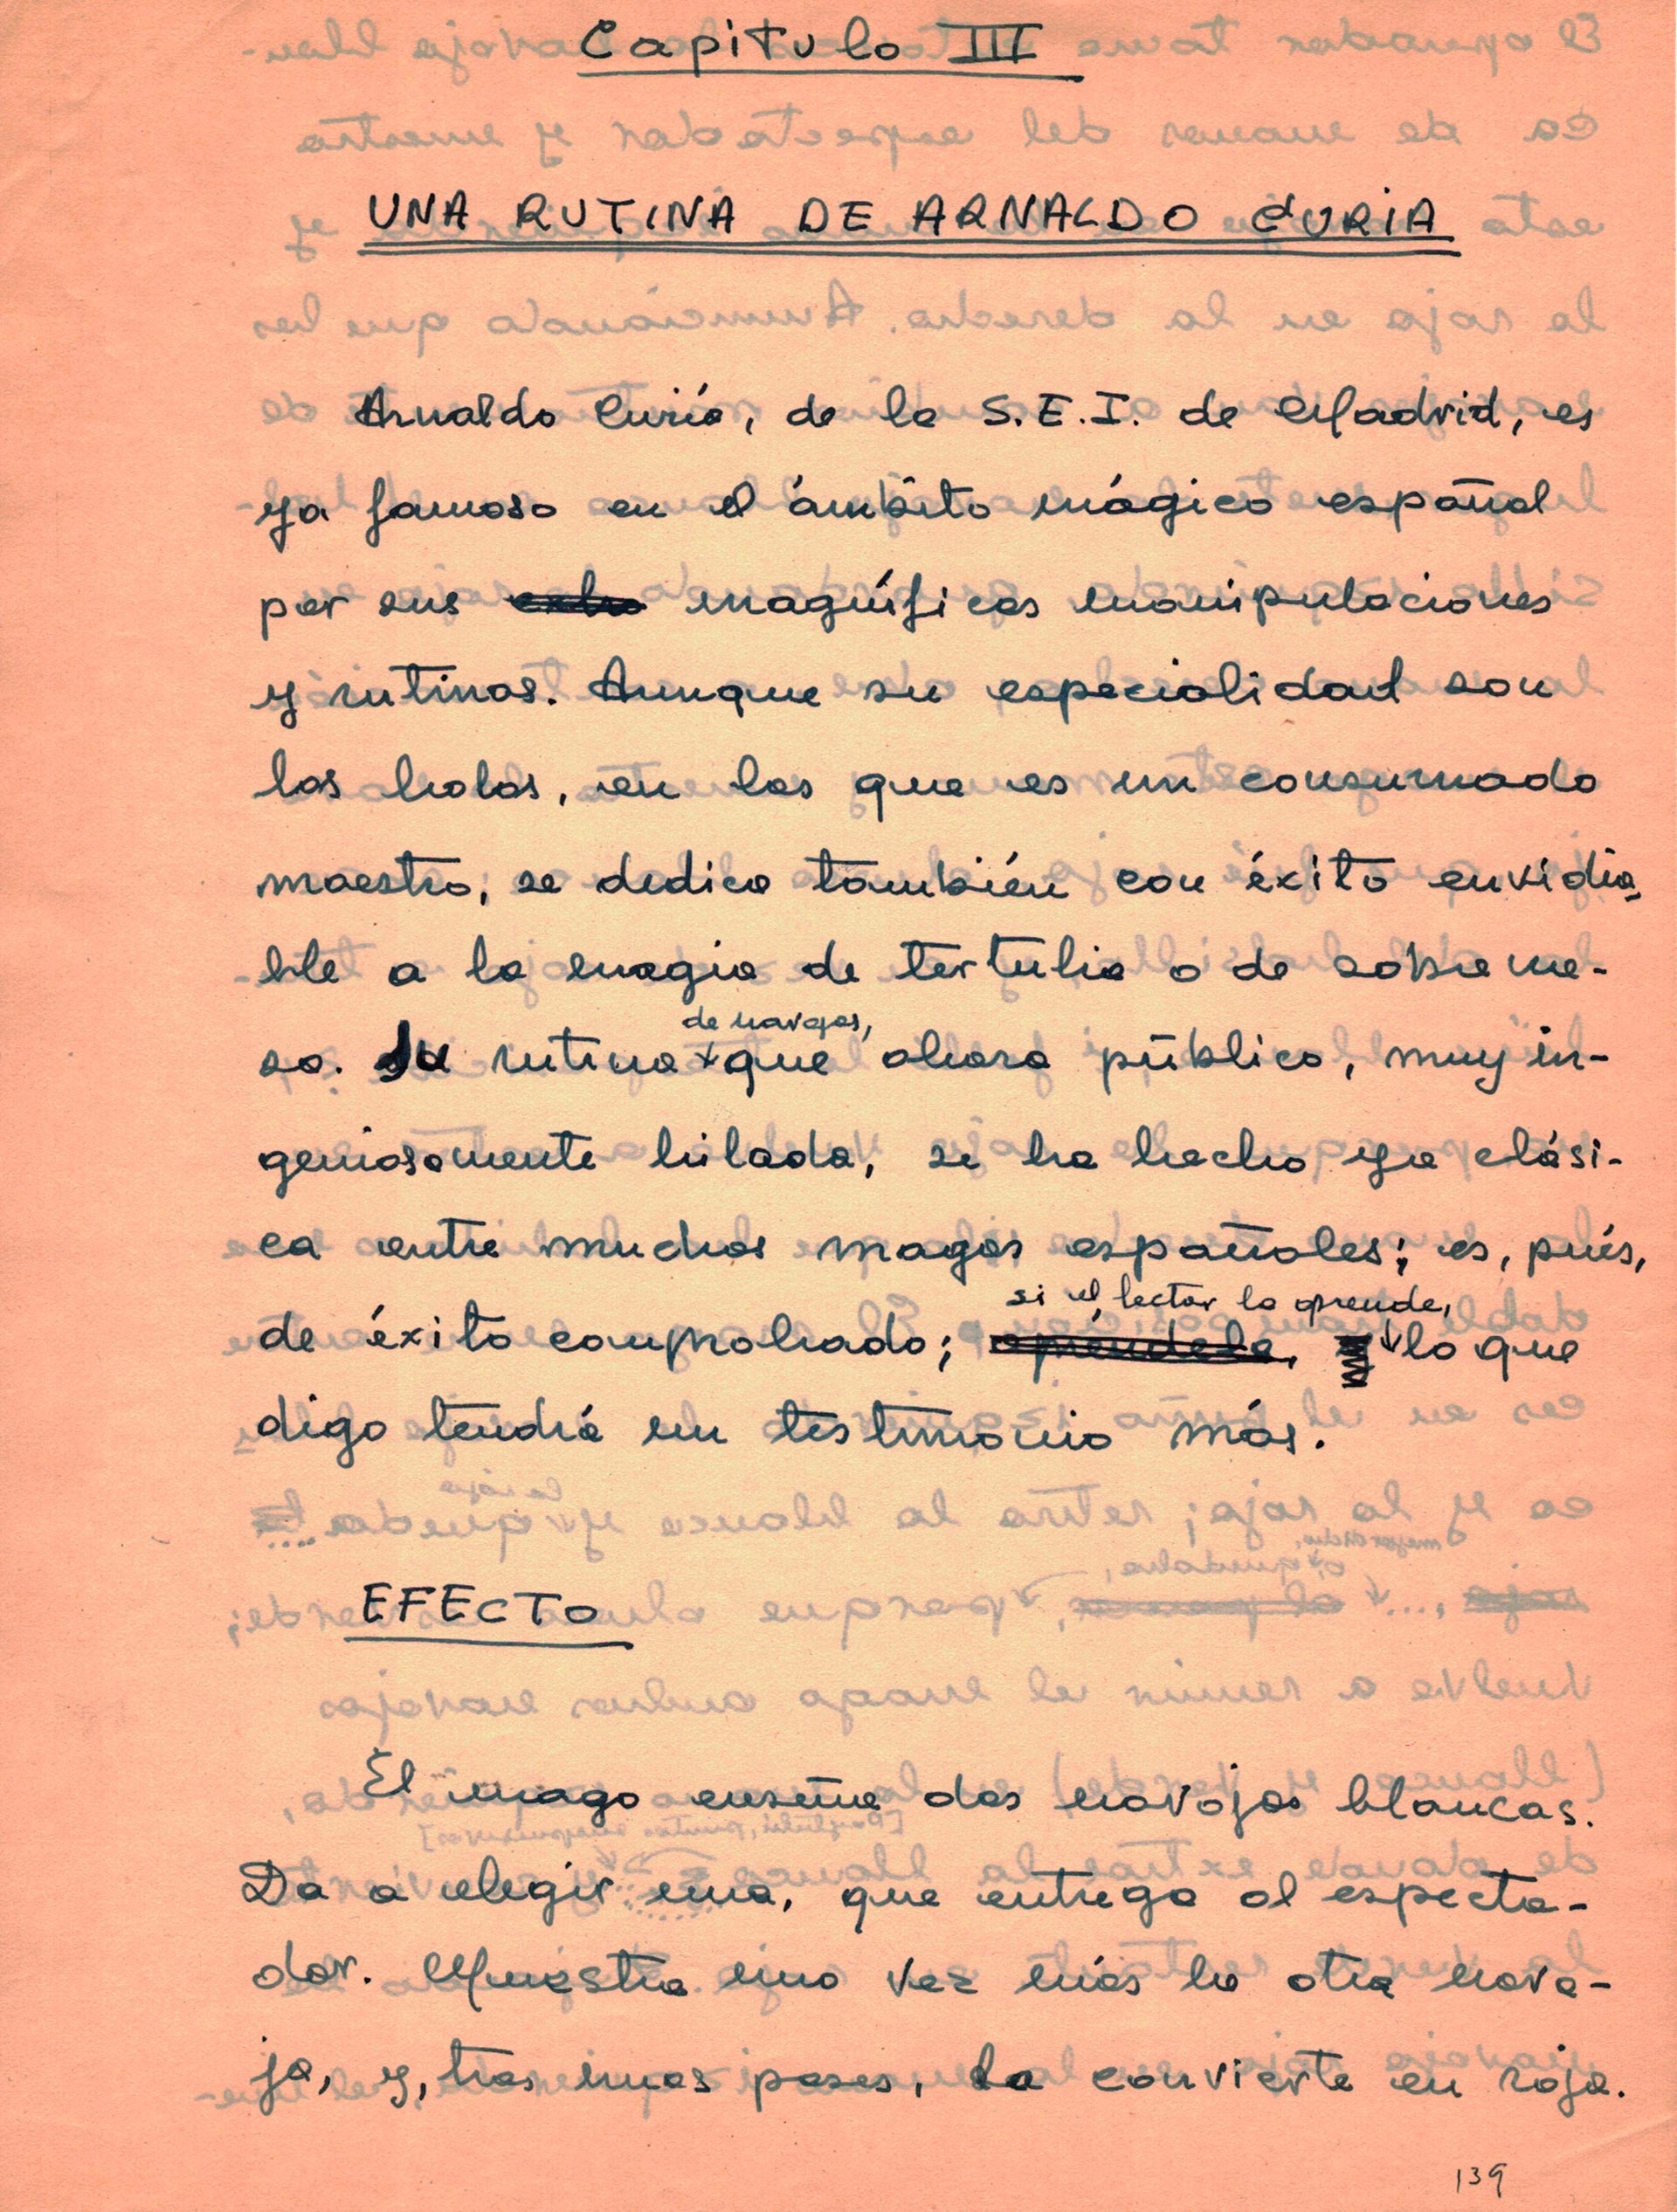 Capitulo III
UNA RUTINA DE ARNALDO CURIA
Arnaldo Curiá, de la S.E.I. de Madrid, es
ya famoso en el ámbito mágico español
por sus magníficas manipulaciones
y rutinas. Aunque su especialidad son
las bolas, en las que es un consumado
maestro, se dedica también con éxito envidia-
ble a la magia de tertulia o de sobreme-
de navajas,
sa. Su rutina que ahora público, muy in-
geniosamente hilada, se ha hecho ya clási-
ca entre muchos magos españoles; es, pués,
si el lector la aprende,
de éxito comprobado; apréndela, lo que
digo tendrá un testimonio más.
EFECTO
El mago enseña dos navajas blancas.
Da a elegir una, que entrega al especta-
dor. Muestra una vez más la otra nava-
ja, y, tras unos pases, la convierte en roja.
139